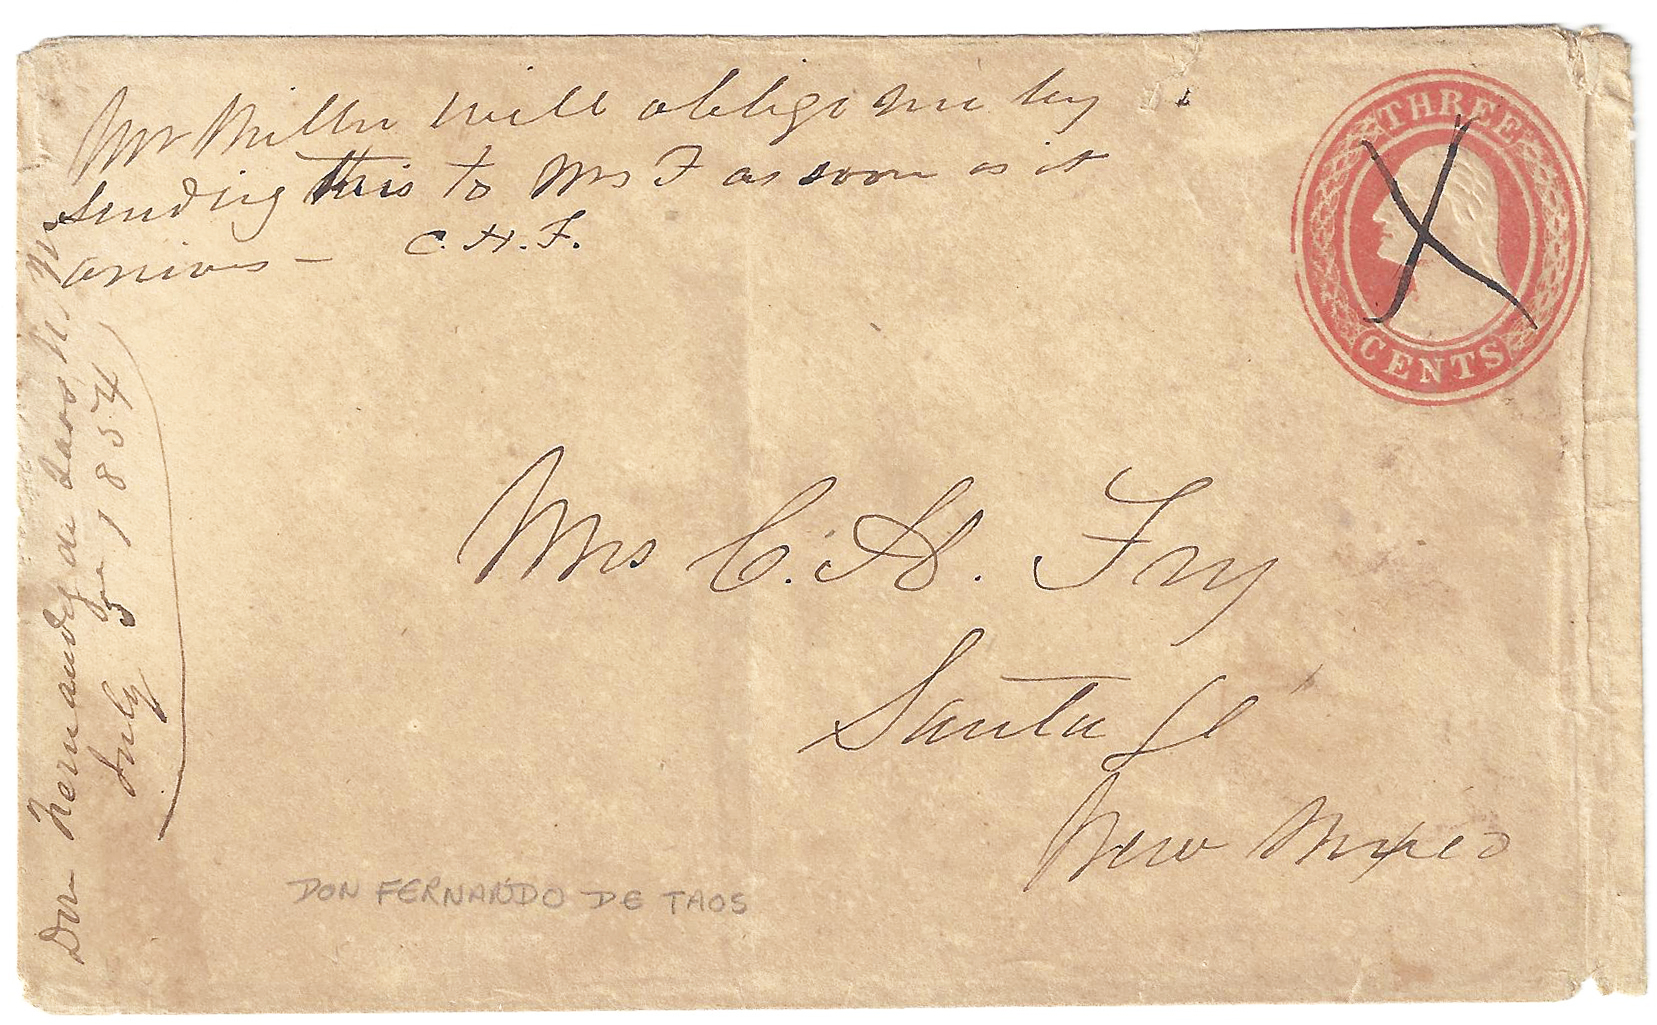 Mr Miller will oblige me by
sending this to Mrs F as soon as it
arrives –
C. H. F.
THREE
CENTS
Mrs C. H. Fry
Santa Fe
New Mexico
Don Hernandez de Taos N. M
July 5 1854
DON FERNANDO DE TAOS